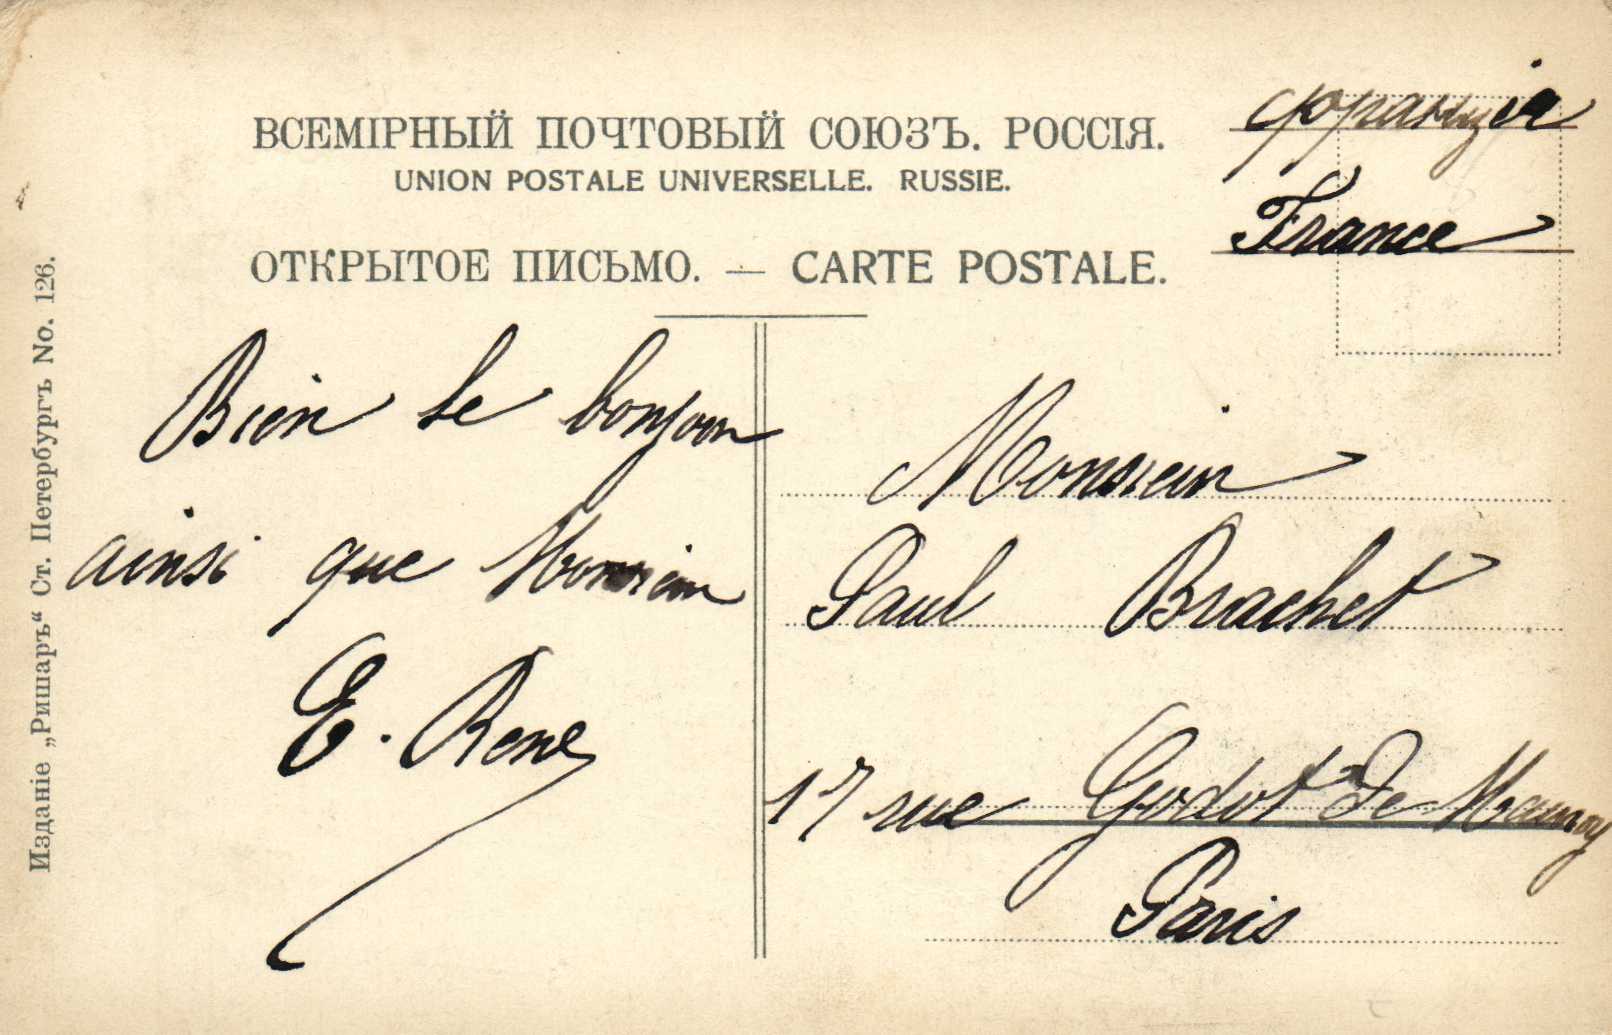 ВСЕМІРНЫЙ ПОЧТОВЫЙ СОЮЗЪ. РОССІЯ.
UNION POSTALE UNIVERSELLE. RUSSIE.
ОТКРЫТОЕ ПИСЬМО. — CARTE POSTALE.
Франція
France
Bien le bonjour
ainsi que Monsieur
E. René
Monsieur
Paul Brachet
17 rue Godot de Mauroy
Paris
Изданіе „Ришаръ“ Ст. Петербургъ No. 126.